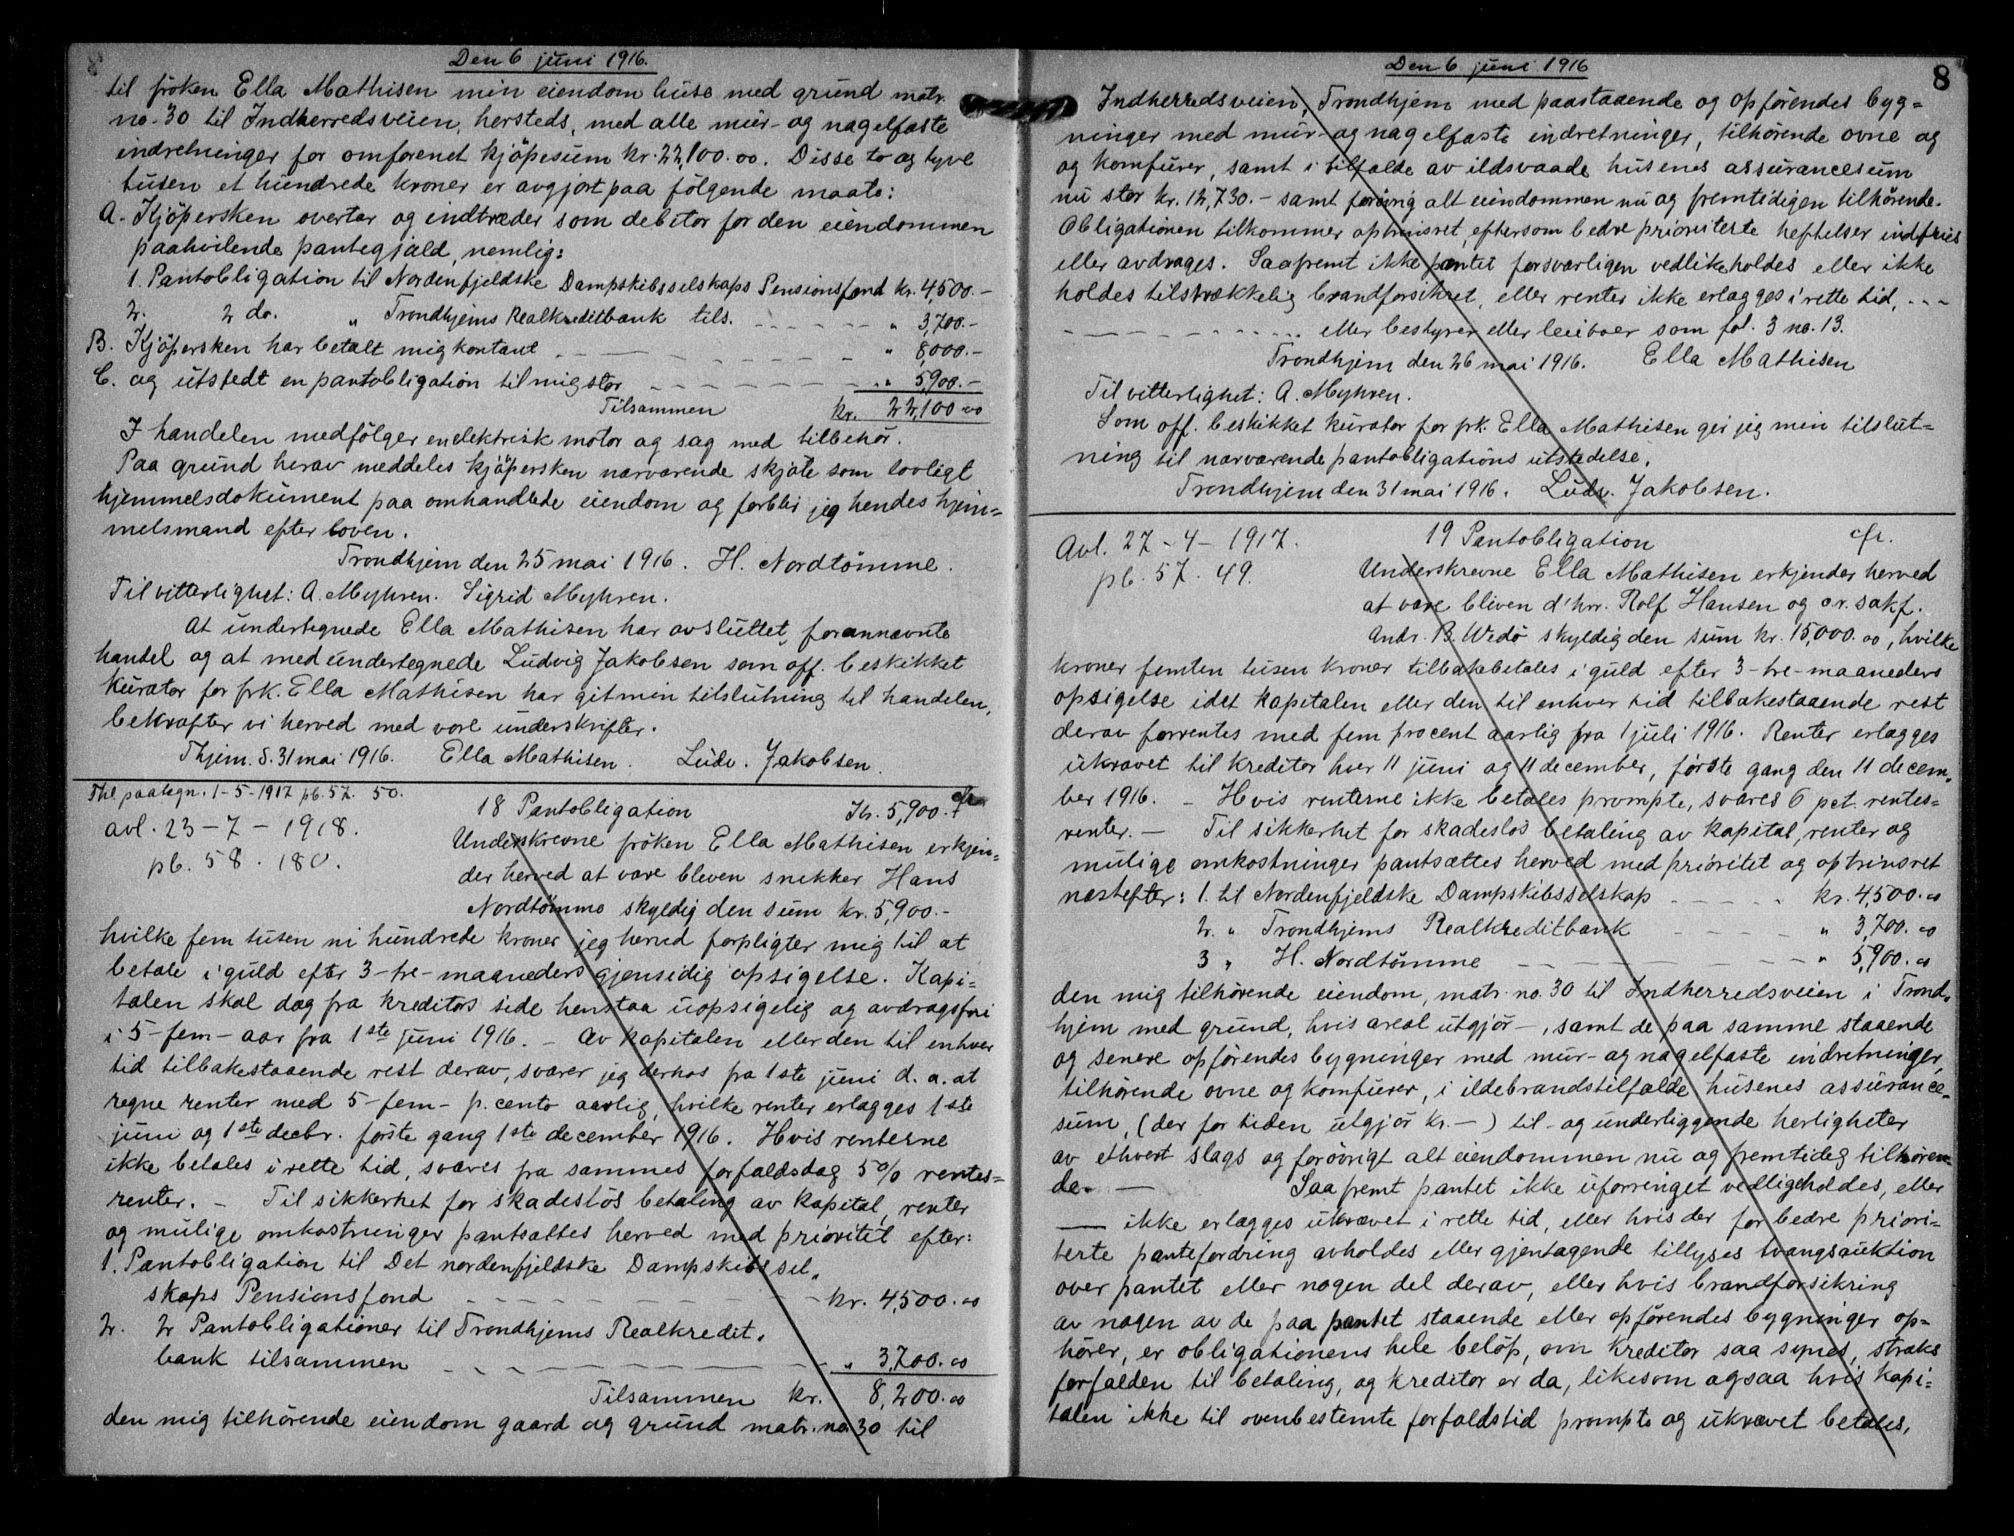 8
Den 6 juni 1916.
til fröken Ella Mathisen min eiendom huse med grund matr.
no. 30 til Indherredsveien, hersteds, med alle mur- og nagelfaste
indretninger for omforenet kjöpesum kr. 22,100.00. Disse to og tyve
tusen et hundrede kroner er avgjort paa följende maate:
A. Kjöpersken overtar og indtræder som debitor for den eiendommen
paahvilende pantegjæld, nemlig:
1. Pantobligation til Nordenfjeldske Dampskibsselskaps Pensionsfond kr. 4,500.-
2. 2 do. " Trondhjems Realkreditbank tils. - - - - " 3,700.-
B. Kjöpersken har betalt mig kontant - - - - " 8,000.-
C. og utstedt en pantobligation til mig stor - - - - " 5,900.-
Tilsammen kr. 22,100.00
I handelen medfölger en elektrisk motor og sag med tilbehör.
Paa grund herav meddeles kjöpersken nærværende skjöte som lovligt
hjemmelsdokument paa omhandlede eiendom og forblir jeg hendes hjem=
melsmand efter loven.
Trondhjem den 25 mai 1916. H. Nordtömme.
Til vitterlighet: A. Myhren. Sigrid Myhren.
At undertegnede Ella Mathisen har avsluttet forannævnte
handel og at medundertegnede Ludvig Jakobsen som off. beskikket
kurator for frk. Ella Mathisen har git min tilslutning til handelen,
bekræfter vi herved med vore underskrifter.
Thjem. d. 31 mai 1916. Ella Mathisen. Ludv. Jakobsen.
Thl. paategn. 1-5-1917 pb. 57. 50.
avl. 23-7-1918.
pb. 58. 180.
18 Pantobligation Kr. 5,900.- cfr.
Underskrevne fröken Ella Mathisen erkjen=
der herved at være bleven snekker Hans
Nordtömme skyldig den sum kr. 5,900.-
hvilke fem tusen ni hundrede kroner jeg herved forpligter mig til at
betale i guld efter 3-tre-maaneders gjensidig opsigelse. Kapi=
talen skal dog fra kreditors side henstaa uopsigelig og avdragsfri
i 5-fem-aar fra 1ste juni 1916. - Av kapitalen eller den til enhver
tid tilbakestaaende rest derav, svarer jeg derhos fra 1ste juni d. a. at
regne renter med 5-fem- p. cento aarlig, hvilke renter erlægges 1ste
juni og 1ste decbr. förste gang 1ste december 1916. Hvis renterne
ikke betales i rette tid, svares fra sammes forfaldsdag 5% rentes=
renter. - Til sikkerhet for skadeslös betaling av kapital, renter
og mulige omkostninger pantsættes herved med prioritet efter:
1. Pantobligation til Det nordenfjeldske Dampskibssel=
skaps Pensionsfond - - - - kr. 4,500.00
2. 2 Pantobligationer til Trondhjems Realkredit=
bank tilsammen - - - - " 3,700.00
Tilsammen kr. 8,200.00
den mig tilhörende eiendom gaard og grund matr. no. 30 til
Den 6 juni 1916
8
Indherredsveien, Trondhjem med paastaaende og opförendes byg=
ninger med mur- og nagelfaste indretninger, tilhörende ovne og
og komfurer, samt i tilfælde av ildsvaade husenes assurancesum
nu stor kr. 12,730.- samt forövrig alt eiendommen nu og fremtidigen tilhörende.
Obligationen tilkommer optrinsret, eftersom bedre prioriterte heftelser indfries
eller avdrages. Saafremt ikke pantet forsvarligen vedlikeholdes eller ikke
holdes tilstrækkelig brandforsikret, eller renter ikke erlægges i rette tid, - - -
- - - - eller bestyrer eller leieboer som fol. 3 no. 13.
Trondhjem den 26 mai 1916. Ella Mathisen
Til vitterlighet: A. Myhren.
Som off. beskikket kurator for frk. Ella Mathisen gir jeg min tilslut=
ning til nærværende pantobligations utstedelse.
Trondhjem den 31 mai 1916. Ludv. Jakobsen.
Avl. 27-4-1917.
pb. 57. 49.
19 Pantobligation cfr.
Underskrevne Ella Mathisen erkjender herved
at være bleven d'hrr. Rolf Hansen og o.r. sakf.
Andr. B. Wedö skyldig den sum kr. 15,000.00, hvilke
kroner femten tusen kroner tilbakebetales i guld efter 3-tre-maaneders
opsigelse idet kapitalen eller den til enhver tid tilbakestaaende rest
derav forrentes med fem procent aarlig fra 1 juli 1916. Renter erlægges
ukrævet til kreditor hver 11 juni og 11 december, förste gang den 11 decem=
ber 1916. - Hvis renterne ikke betales prompte, svares 6 pct. rentes=
renter. - Til sikkerhet for skadeslös betaling av kapital, renter og
mulige omkostninger pantsættes herved med prioritet og optrinsret
næstefter: 1. til Nordenfjeldske Dampskibsselskap - - - - kr. 4,500.00
2. " Trondhjems Realkreditbank - - - - " 3,700.00
3 " H. Nordtömme - - - - " 5,900.00
den mig tilhörende eiendom, matr. no. 30 til Indherredsveien i Trond=
hjem med grund, hvis areal utgjör -, samt de paa samme staaende
og senere opförendes bygninger med mur- og nagelfaste indretninger,
tilhörende ovne og komfurer, i ildebrandstilfælde husenes assurance=
sum, (der for tiden utgjör kr. -) til- og underliggende herligheter
av ethvert slags og forövrigt alt eiendommen nu og fremtideg tilhören=
de. - Saafremt pantet ikke uforrenget vedligeholdes, eller
- ikke erlægges ukrævet i rette tid, eller hvis der for bedre priori=
terte pantefordring avholdes eller gjentagende tillyses tvangsauktion
over pantet eller nogen del derav, eller hvis brandforsikring
av nogen av de paa pantet staaende eller opförendes bygninger op=
hörer, er obligationens hele belöp, om kreditor saa synes, straks
forfalden til betaling, og kreditor er da, likesom ogsaa hvis kapi=
talen ikke til ovenbestemte forfaldstid prompte og ukrævet betales,